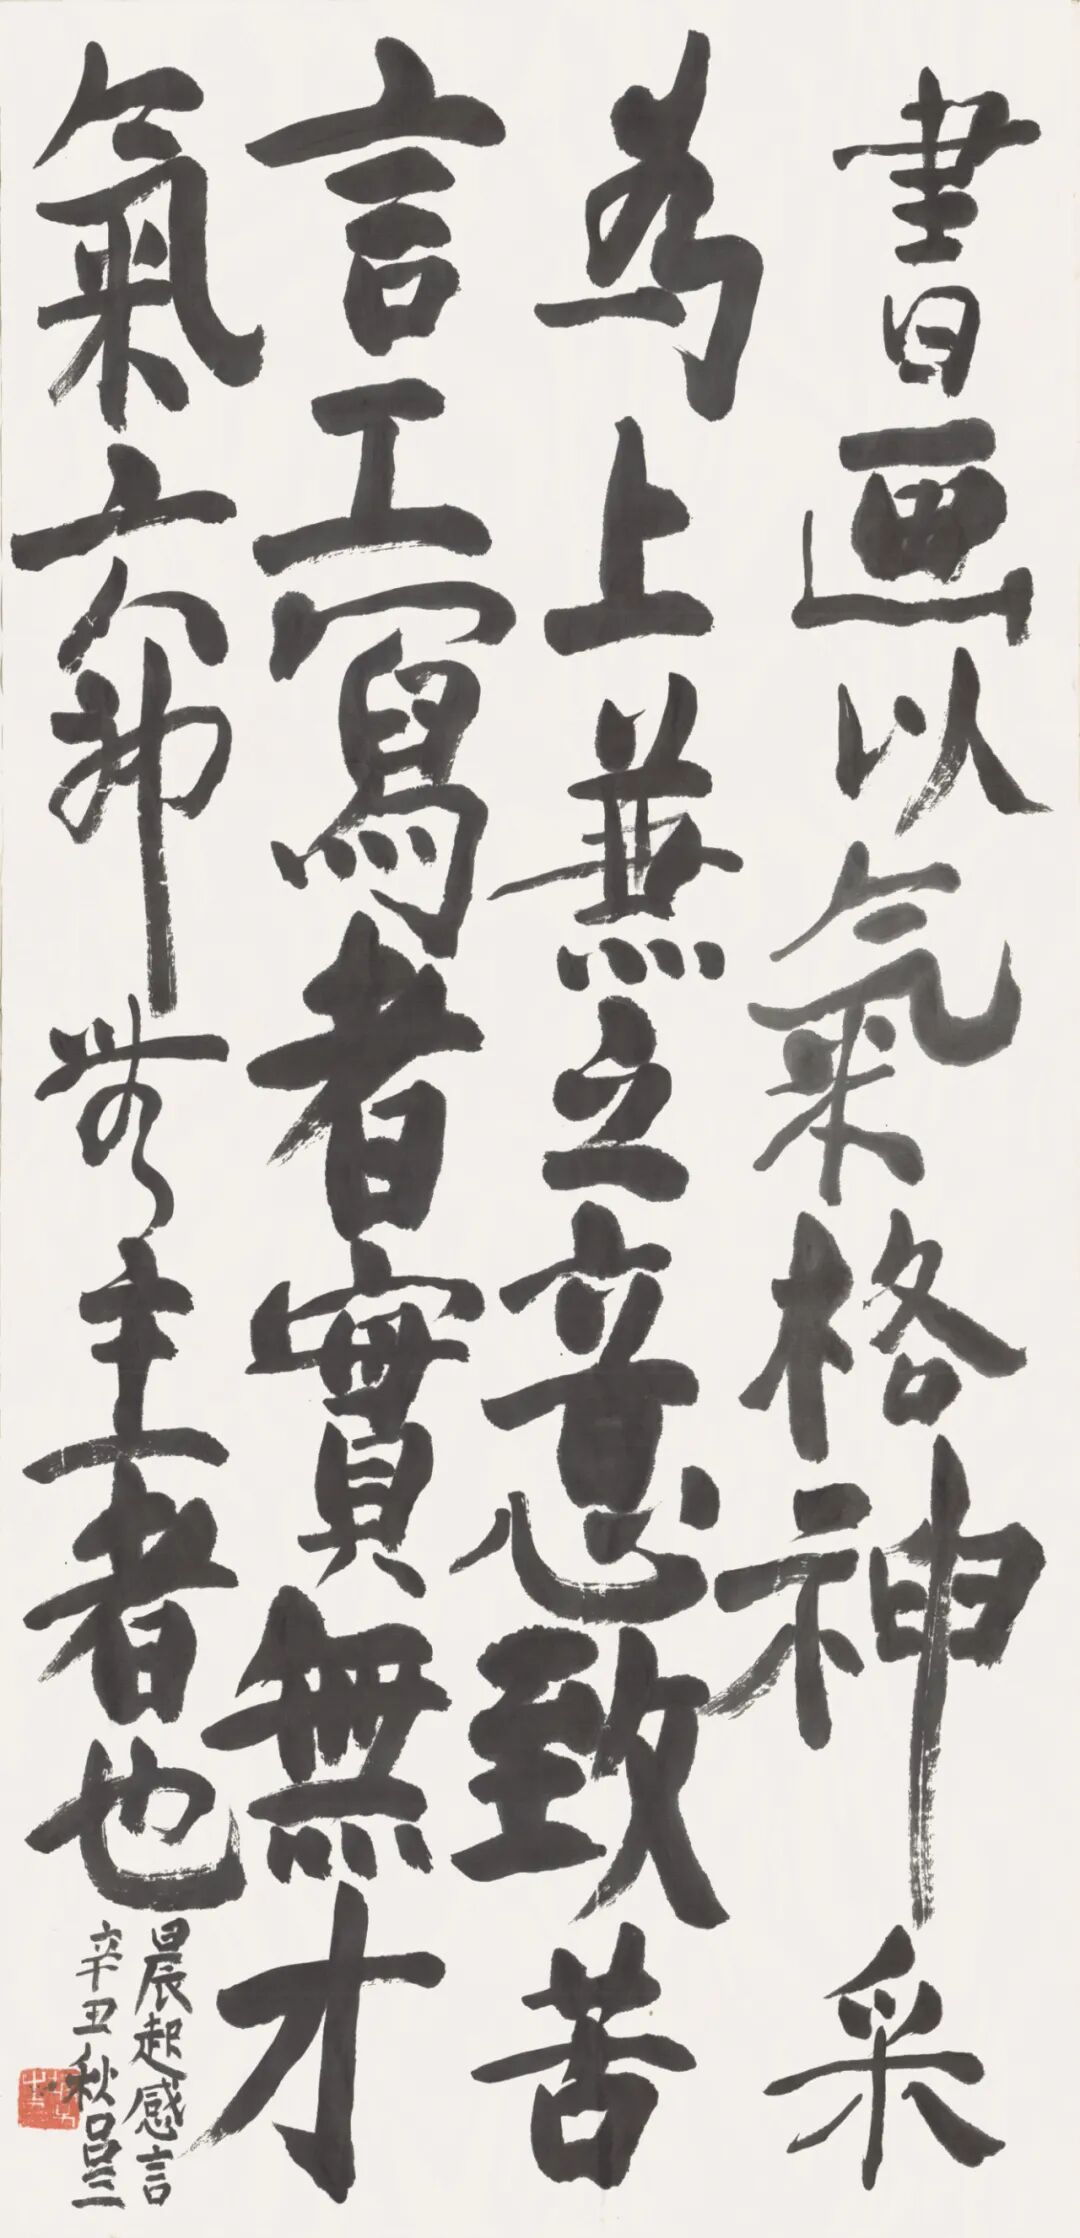 書画以氣格神采
為上兼之意致苦
言工寫者實無才
氣六神無主者也
晨起感言
辛丑秋吕三